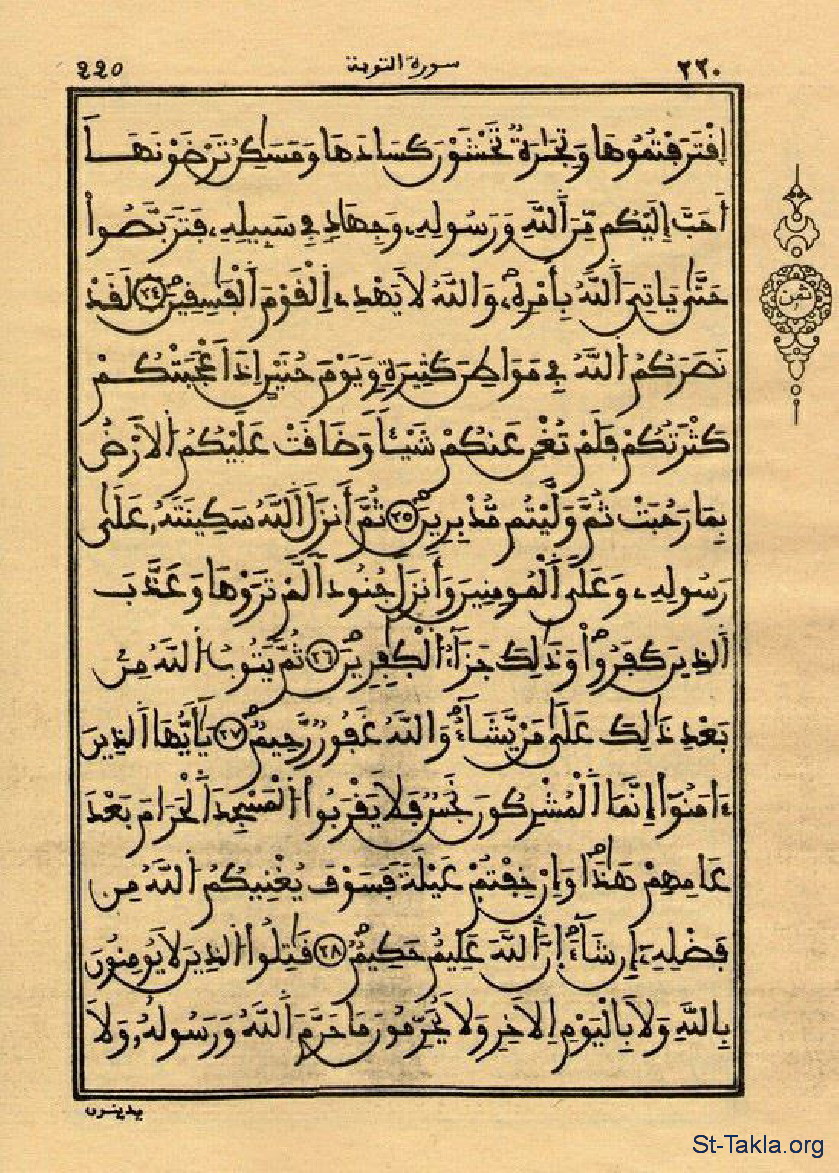 220 سورة التوبة ٢٢٠
اِ۪قْتَرَفْتُمُوهَا وَتِجَٰرَةٌ تَخْشَوْنَ كَسَادَهَا وَمَسَٰكِنُ تَرْضَوْنَهَا
أَحَبَّ إِلَيْكُم مِّنَ اَ۬للَّهِ وَرَسُولِهِۦ وَجِهَادٍ فِے سَبِيلِهِۦ فَتَرَبَّصُواْ
حَتَّىٰ يَاتِىَ اَ۬للَّهُ بِأَمْرِهِۦ وَاللَّهُ لَا يَهْدِے اِ۬لْقَوْمَ اَ۬لْفَٰسِقِينَ ٢٤ لَقَدْ
نَصَرَكُمُ اُ۬للَّهُ فِے مَوَاطِنَ كَثِيرَةٍ وَيَوْمَ حُنَيْنٍ إِذَ اَعْجَبَتْكُمْ
كَثْرَتُكُمْ فَلَمْ تُغْنِ عَنكُمْ شَيْـٔاً وَضَاقَتْ عَلَيْكُمُ اُ۬لَارْضُ
بِمَا رَحُبَتْ ثُمَّ وَلَّيْتُم مُّدْبِرِينَ ٢٥ ثُمَّ أَنزَلَ اَ۬للَّهُ سَكِينَتَهُۥ عَلَىٰ
رَسُولِهِۦ وَعَلَى اَ۬لْمُومِنِينَ وَأَنزَلَ جُنُوداً لَّمْ تَرَوْهَا وَعَذَّبَ
اَ۬لذِينَ كَفَرُواْ وَذَٰلِكَ جَزَآءُ اُ۬لْكَٰفِرِينَ ٢٦ ثُمَّ يَتُوبُ اُ۬للَّهُ مِنۢ
بَعْدِ ذَٰلِكَ عَلَىٰ مَنْ يَّشَآءُ وَاللَّهُ غَفُورٌ رَّحِيمٌ ٢٧ يَٰٓأَيُّهَا اَ۬لذِينَ
ءَامَنُوٓاْ إِنَّمَا اَ۬لْمُشْرِكُونَ نَجَسٌ فَلَا يَقْرَبُواْ اُ۬لْمَسْجِدَ اَ۬لْحَرَامَ بَعْدَ
عَامِهِمْ هَٰذَا وَإِنْ خِفْتُمْ عَيْلَةً فَسَوْفَ يُغْنِيكُمُ اُ۬للَّهُ مِن
فَضْلِهِۦٓ إِن شَآءَ إِنَّ اَ۬للَّهَ عَلِيمٌ حَكِيمٌ ٢٨ قَٰتِلُواْ اُ۬لذِينَ لَا يُومِنُونَ
بِاللَّهِ وَلَا بِالْيَوْمِ اِ۬لَاخِرِ وَلَا يُحَرِّمُونَ مَا حَرَّمَ اَ۬للَّهُ وَرَسُولُهُۥ وَلَا
ثمن
يدينون
St-Takla.org